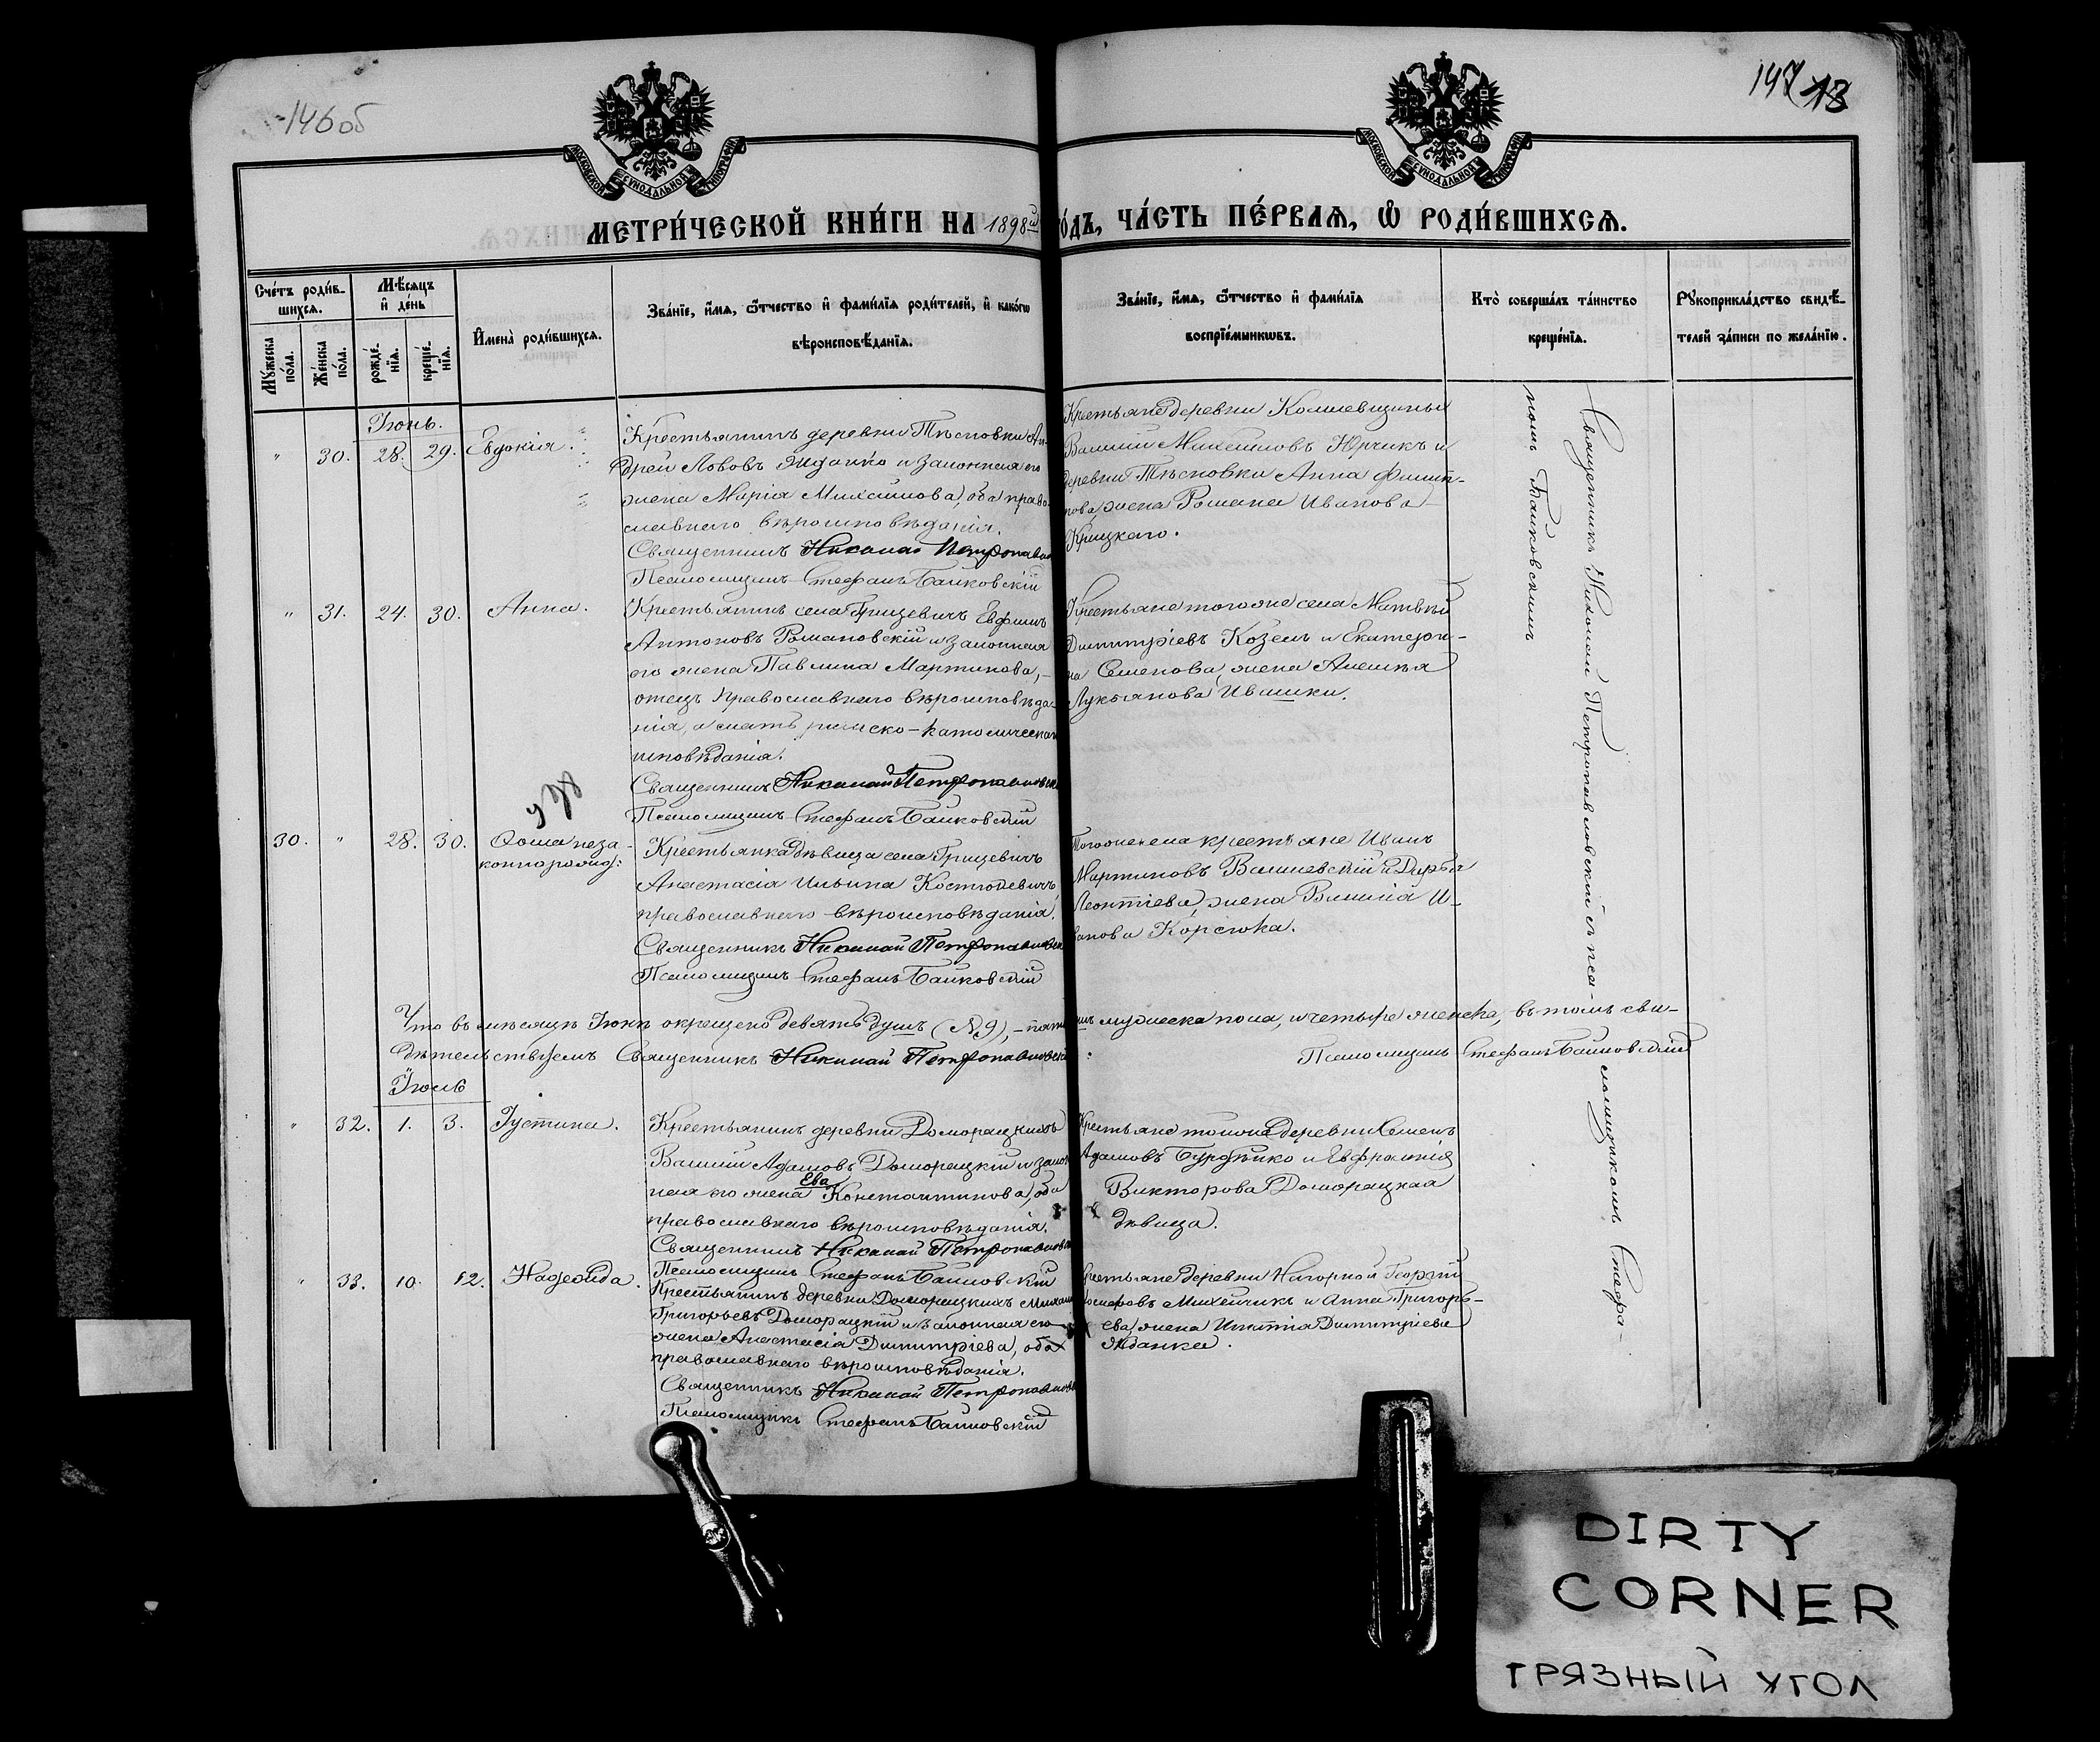 146 об
147 13
МОСКОВСКОЙ СѴНОДАЛЬНОЙ ТИПОГРАФІИ
МОСКОВСКОЙ СѴНОДАЛЬНОЙ ТИПОГРАФІИ
МЕТРИ́ЧЕСКОЙ КНИ́ГИ НА 1898й ГОДЪ, ЧА́СТЬ ПЕ́РВАЯ, Ѽ РОДИ́ВШИХСЯ.
Сче́тъ роди́в-
шихся.
Мѣ́сяцъ
и де́нь
Му́жеска по́ла.
Же́нска по́ла.
рожде́-
нія.
креще́-
нія.
Имена̀ роди́вшихся.
Зва́ніе, и́мя, ѻ́тчество и фами́лія роди́телей, и како́гѡ
вѣроисповѣ́данія.
Зва́ніе, и́мя, ѻ́тчество и фами́лія
воспріе́мникѡвъ.
Кто̀ соверша́лъ та́инство
креще́нія.
Рукоприкла́дство свидѣ́-
телей за́писи по жела́нію.
Іюнь.
" 30. 28. 29. Евдокія.
Крестьянинъ деревни Тѣсновки Ан-
дрей Лововъ Жданко и законная его
жена Марія Михаилова, оба право-
славнаго вѣроисповѣданія.
Священникъ Николай Петропавлов
Псаломщикъ Стефанъ Банковскій
Крестьяне деревни
Василій Михаиловъ Юрчикъ и
деревни Тѣсновки Анна Филип-
пова, жена Романа Иванова
Крицкаго.
" 31. 24. 30. Анна.
Крестьянинъ села Грицевичъ Евфимъ
Антоновъ Романовскій и законная
его жена Павлина Мартинова,-
отецъ православнаго вѣроисповѣда-
нія, а мать римско-католическаго
исповѣданія.
Священникъ Николай Петропавловск
Псаломщикъ Стефанъ Банковскій
Крестьяне того же села Матвѣй
Димитріевъ Козелъ и Екатери-
на Семенова, жена Алексѣя
Лукьянова Ивашки.
30. " 28. 30. Ѳома неза-
коннорожд:
Крестьянка дѣвица села Грицевичъ
Анастасія Ильина Костюкевичъ,
православнаго вѣроисповѣданія.
Священникъ Николай Петропавловск
Псаломщикъ Стефанъ Банковскій
Того же села крестьяне Иванъ
Мартиновъ Василевскій и Дарья
Леонтіева, жена Василія И-
ванова Корсюка.
Что въ мѣсяцѣ Іюнѣ окрещено девять душъ (№ 9),- пять душъ мужеска пола, и четыре женска, въ томъ сви-
дѣтельствуемъ Священникъ Николай Петропавловскій Псаломщикъ Стефанъ Банковскій
Іюль
" 32. 1. 3. Іустина.
Крестьянинъ деревни Доморацкихъ
Василій Адамовъ Доморацкій и закон
ная его жена Ева Константинова, оба
православнаго вѣроисповѣданія.
Священникъ Николай Петропавловск
Псаломщикъ Стефанъ Банковскій
Крестьяне той же деревни Семенъ
Адамовъ Бурдѣйко и Евфросинія
Викторова Доморацкая
дѣвица.
" 33. 10. 12. Надежда.
Крестьянинъ деревни Доморацкихъ Михаилъ
Григорьевъ Доморацкій и законная его
жена Анастасія Димитріева, оба
православнаго вѣроисповѣданія.
Священникъ Николай Петропавловск
Псаломщикъ Стефанъ Банковскій
Крестьяне деревни Нагорной Георгій
Іосифовъ Михейчикъ и Анна Григорь-
ева, жена Игнатія Димитріева
Жданка.
Священникъ Николай Петропавловскій съ псаломщикомъ Стефа-
номъ Банковскимъ
DIRTY
CORNER
ГРЯЗНЫЙ УГОЛ